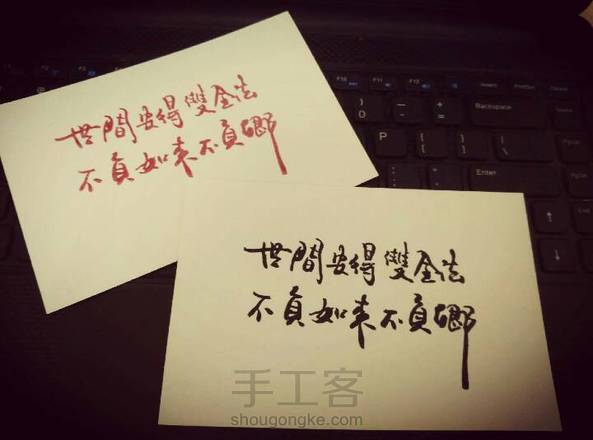 世間安得雙全法
不負如来不負卿
F10 F11 F12
) 0 _ - + =
Backspace
P { [ } ]
Enter
世間安得雙全法
不負如来不負卿
手工客
shougongke.com